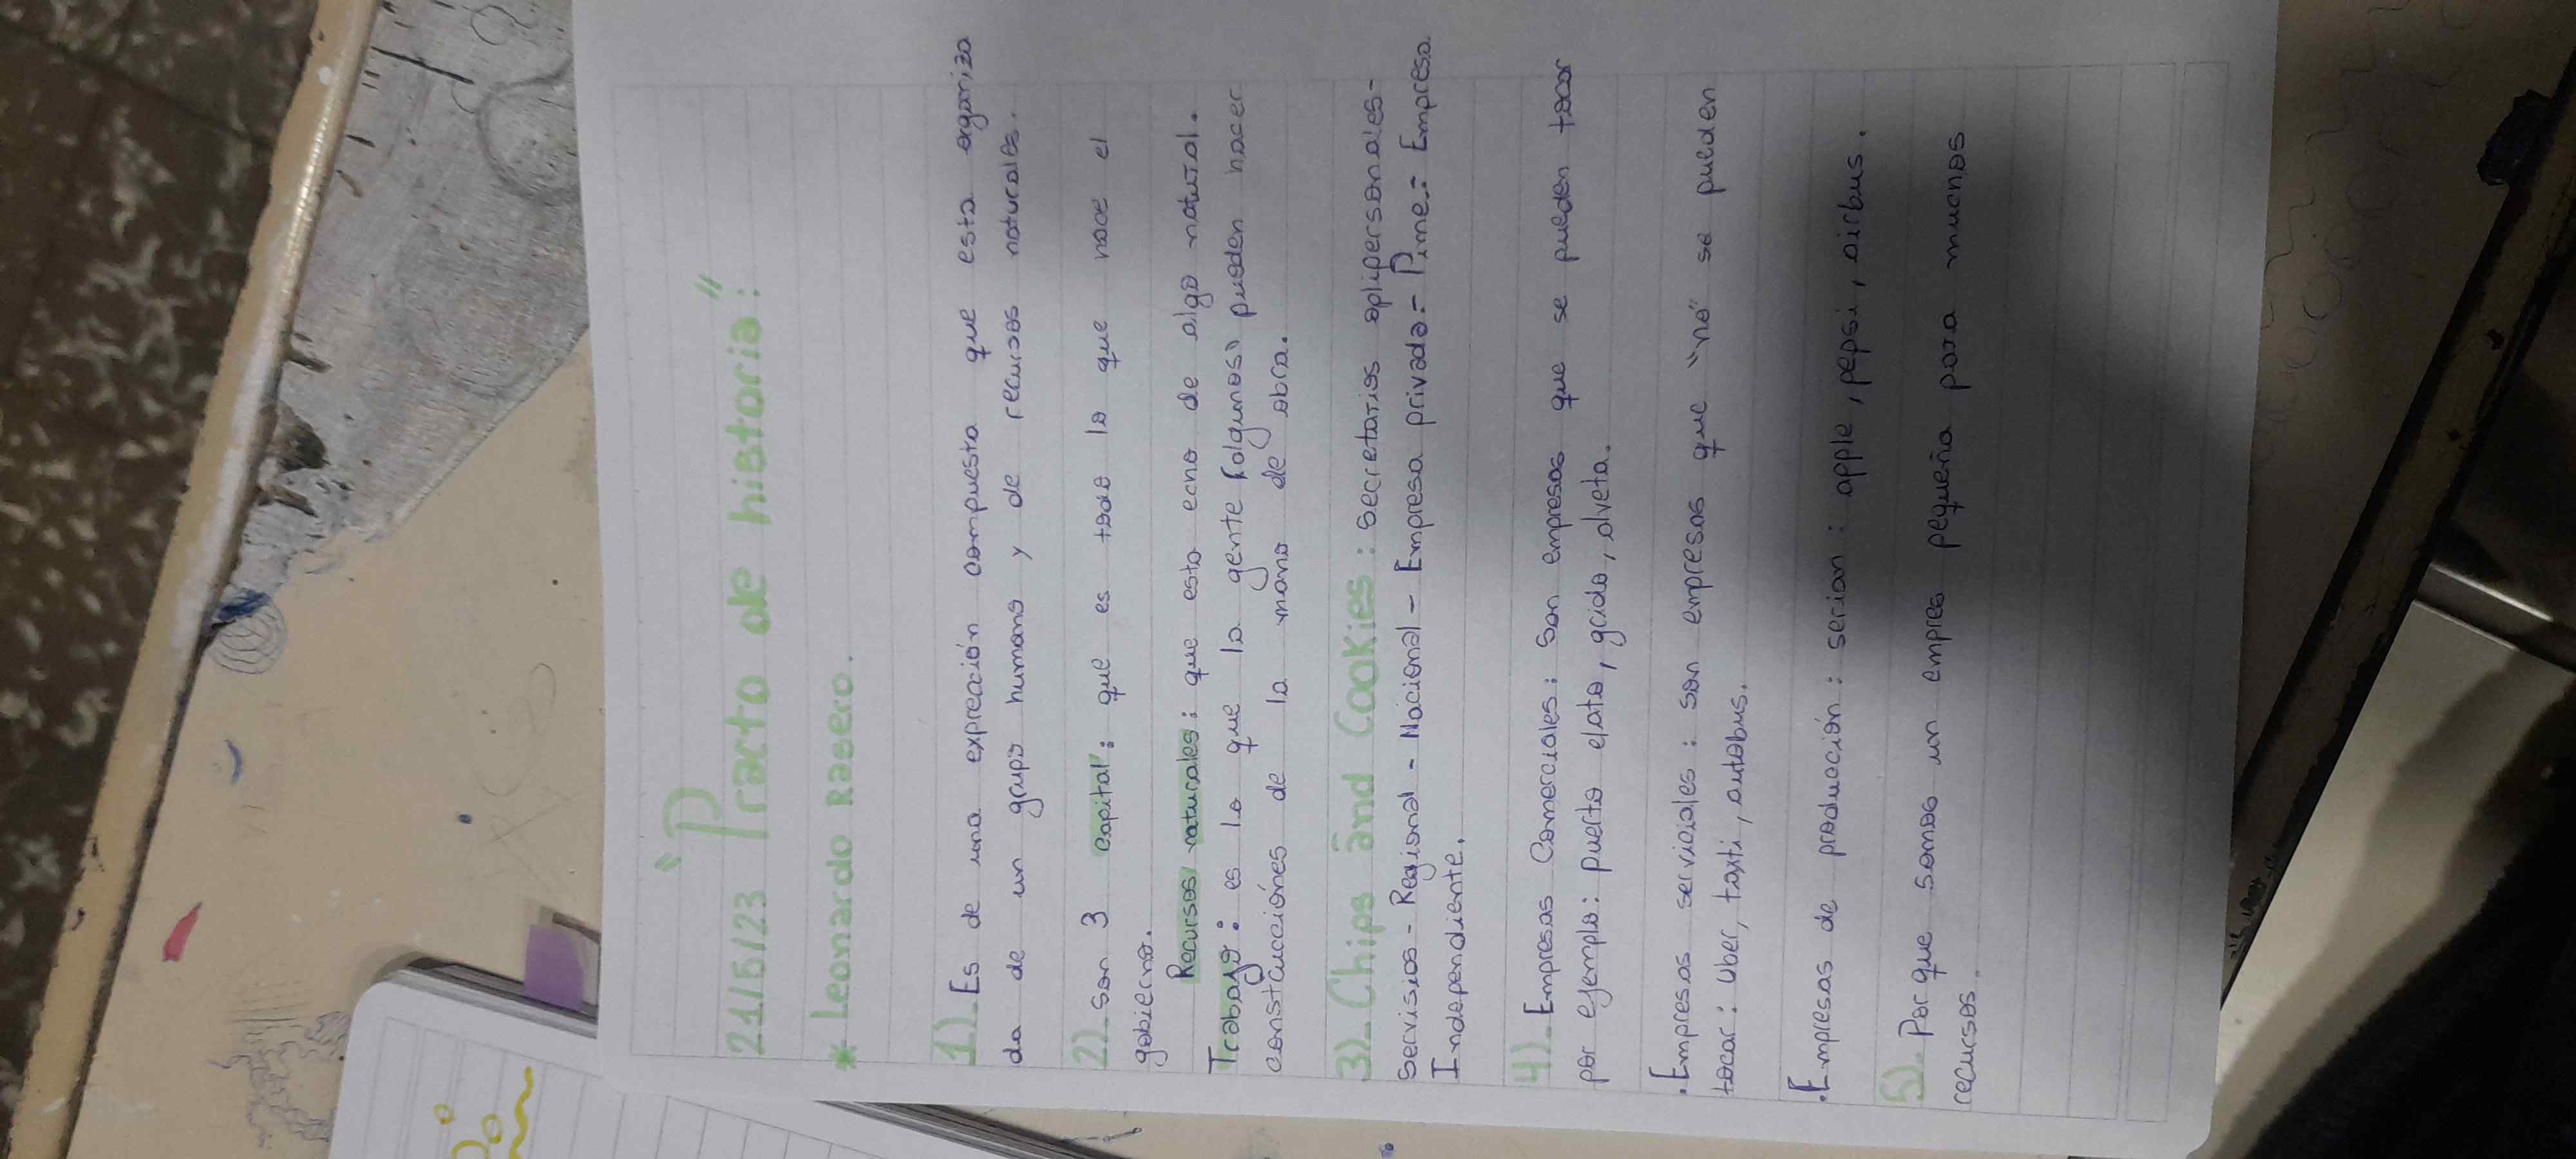 21/6/23 "Practo de historia":
* Leonardo Rasero.
1)_ Es de una expreación compuesta que esta organiza
da de un grupo humano y de recursos naturales.
2)_ son 3 capital: que es todo lo que hace el
gobierno.
Recursos naturales: que esto echo de algo natural.
Trabajo: es lo que la gente (algunos) pueden hacer
construcciónes de la mano de obra.
3)_ Chips and Cookies: secretarios
Servisios - Regional - Nacional - Empresa privada - Pime - Empresa.
Independiente.
4)_ Empresas Comerciales: son empresas que se pueden tocar
por ejemplo: puerto elato, grido, olveta.
.Empresas serviciales: son empresas que "no" se pueden
tocar: uber, taxti, autobus.
.Empresas de producción: serian: apple, pepsi, airbus.
5)_ Por que somos un empres pequeña para muchos
recursos.